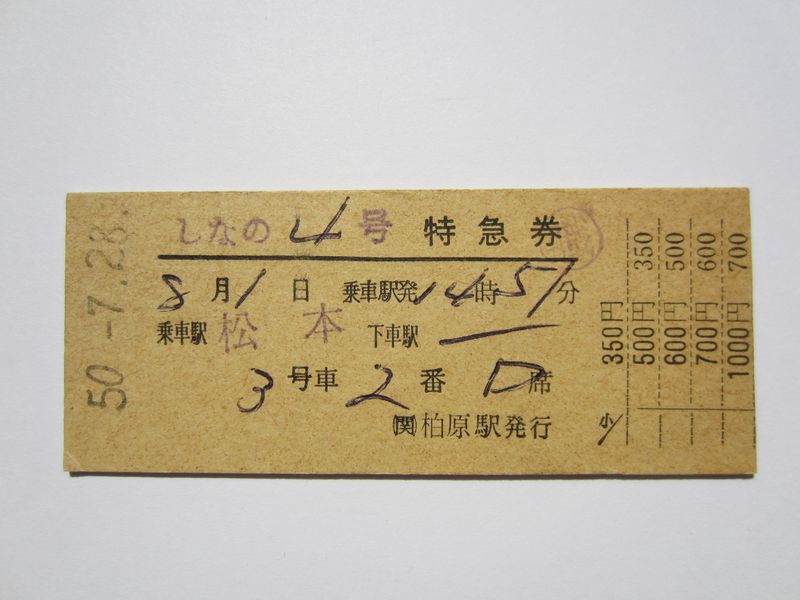 50-7.28
しなの 4 号 特急券
8月1日 乗車駅発14時51分
乗車駅 松本 下車駅 ―
3号車 2番 D席
㊕柏原駅発行
小
350円
500円 350
600円 500
700円 600
1000円 700